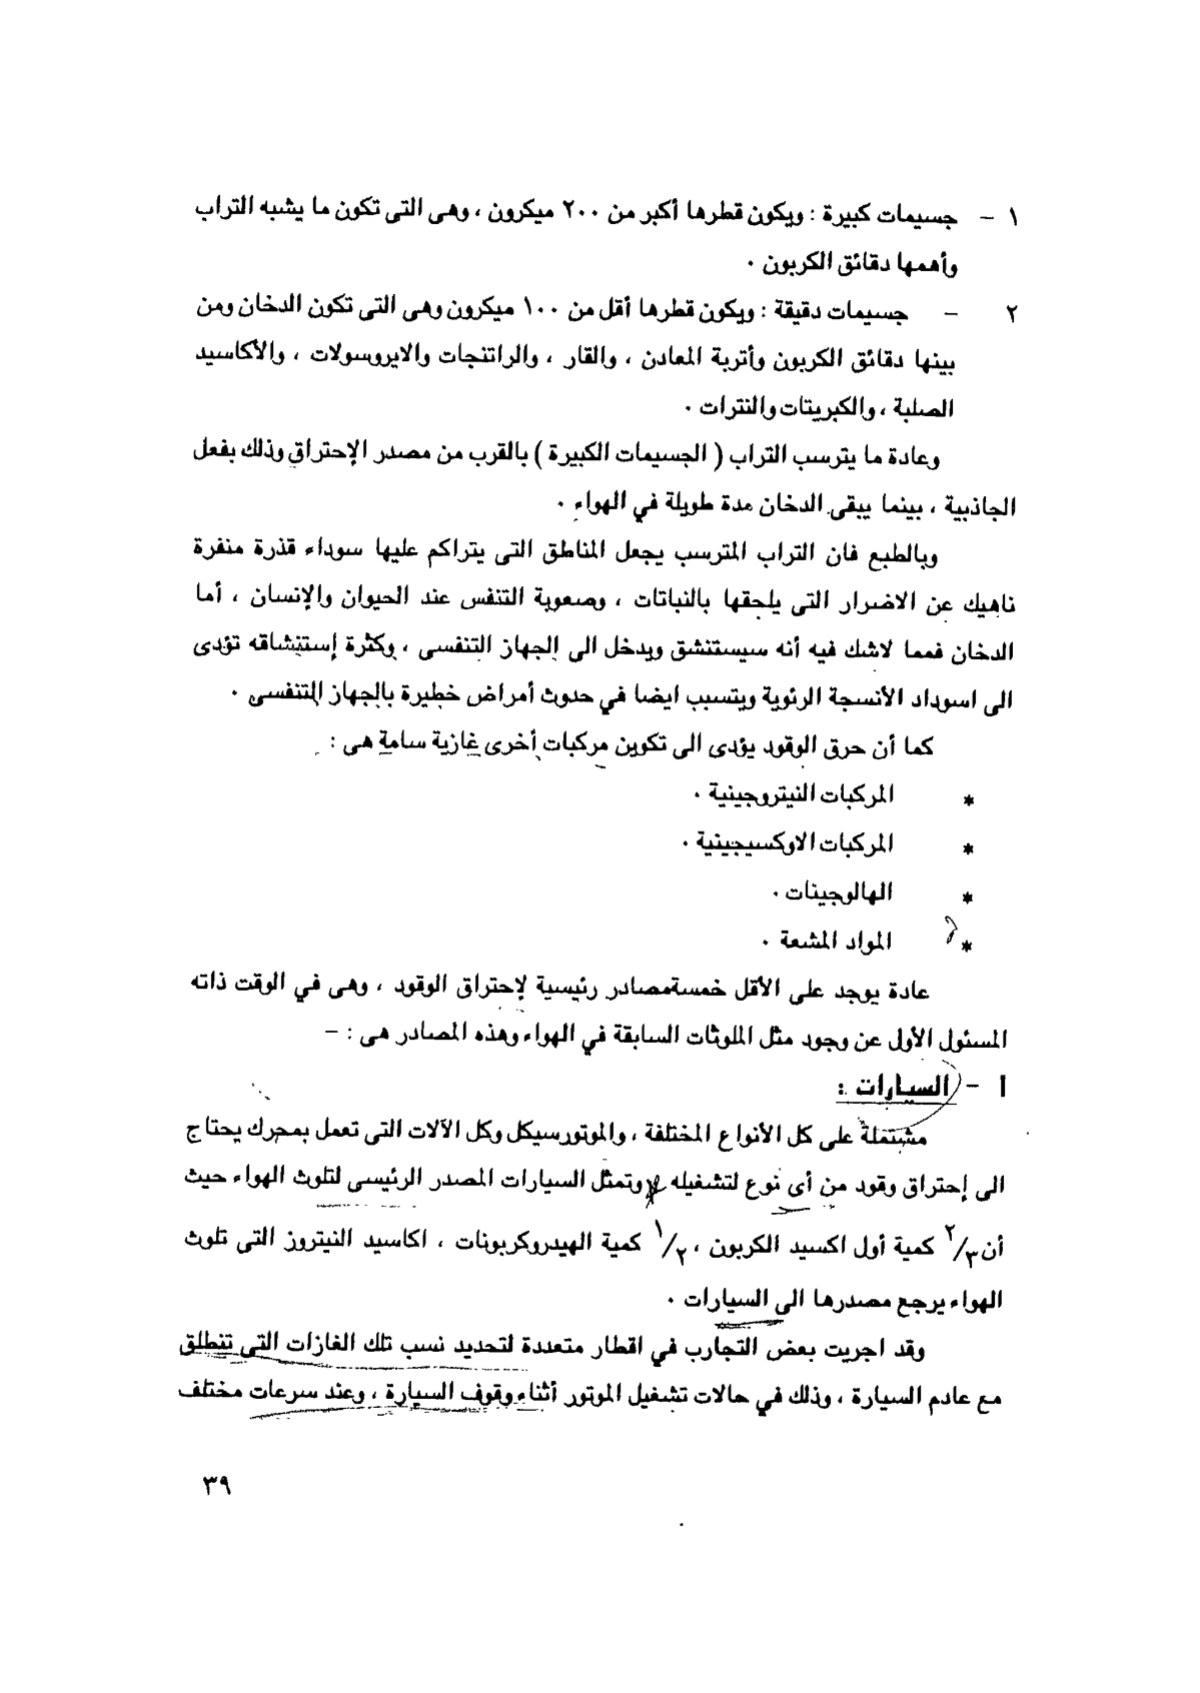 ١ - جسيمات كبيرة : ويكون قطرها أكبر من ٢٠٠ ميكرون ، وهى التى تكون ما يشبه التراب
وأهمها دقائق الكربون .
٢ - جسيمات دقيقة : ويكون قطرها أقل من ١٠٠ ميكرون وهى التى تكون الدخان ومن
بينها دقائق الكربون وأتربة المعادن ، والقار ، والراتنجات والايروسولات ، والأكاسيد
الصلبة ، والكبريتات والنترات .
وعادة ما يترسب التراب ( الجسيمات الكبيرة ) بالقرب من مصدر الإحتراق وذلك بفعل
الجاذبية ، بينما يبقى الدخان مدة طويلة في الهواء .
وبالطبع فان التراب المترسب يجعل المناطق التى يتراكم عليها سوداء قذرة منفرة
ناهيك عن الاضرار التى يلحقها بالنباتات ، وصعوبة التنفس عند الحيوان والإنسان ، أما
الدخان فمما لاشك فيه أنه سيستنشق ويدخل الى الجهاز التنفسى ، وكثرة إستنشاقه تؤدى
الى اسوداد الأنسجة الرئوية ويتسبب ايضا في حدوث أمراض خطيرة بالجهاز التنفسى .
كما أن حرق الوقود يؤدى الى تكوين مركبات أخرى غازية سامة هى :
* المركبات النيتروجينية .
* المركبات الاوكسيجينية .
* الهالوجينات .
* المواد المشعة .
عادة يوجد على الأقل خمسةمصادر رئيسية لإحتراق الوقود ، وهى في الوقت ذاته
المسئول الأول عن وجود مثل الملوثات السابقة في الهواء وهذه المصادر هى : -
ا - السيارات :
مشتملة على كل الأنواع المختلفة ، والموتورسيكل وكل الآلات التى تعمل بمحرك يحتاج
الى إحتراق وقود من أى نوع لتشغيله وتمثل السيارات المصدر الرئيسى لتلوث الهواء حيث
أن ٢/٣ كمية أول اكسيد الكربون ، ١/٢ كمية الهيدروكربونات ، اكاسيد النيتروز التى تلوث
الهواء يرجع مصدرها الى السيارات .
وقد اجريت بعض التجارب في اقطار متعددة لتحديد نسب تلك الغازات التى تنطلق
مع عادم السيارة ، وذلك في حالات تشغيل الموتور أثناء وقوف السيارة ، وعند سرعات مختلف
٣٩